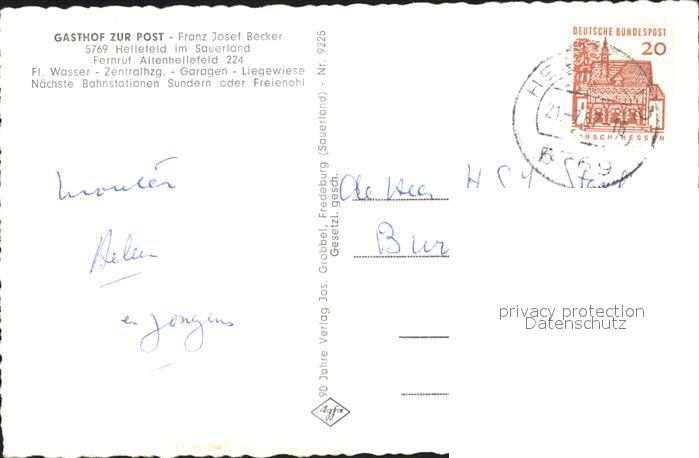 GASTHOF ZUR POST - Franz Josef Becker
5769 Hellefeld im Sauerland
Fernruf Altenhellefeld 224
Fl. Wasser - Zentralhzg. - Garagen - Liegewiese
Nächste Bahnstationen Sundern oder Freienohl
90 Jahre Verlag Jos. Grobbel, Fredeburg (Sauerland) - Nr. 9225
Gesetzl. gesch.
Agfa
DEUTSCHE BUNDESPOST
20
RSCH/HESSEN
5769
de Heer H
Bur
en jongens
privacy protection
Datenschutz